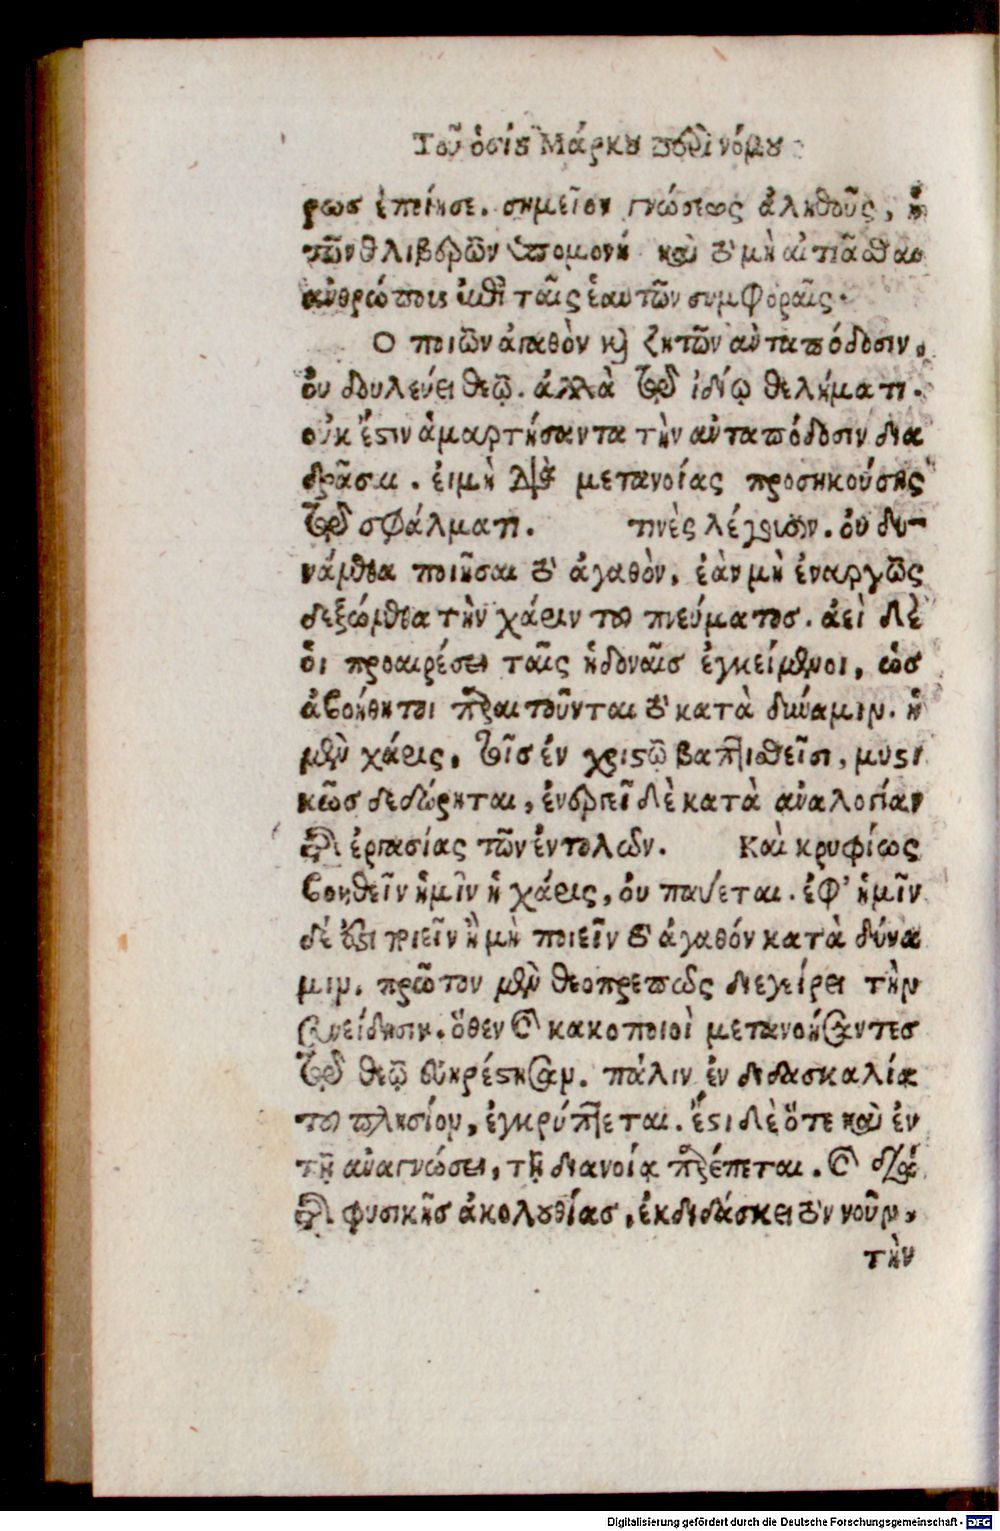 Τοῦ ὁσίου Μάρκου περὶ νόμου
ρωσ ἐποίησε. σημεῖον γνώσεως ἀληθοῦς, ἡ
τῶν θλιβερῶν ὑπομονή καὶ τὸ μὴ αἰτιᾶσθαι
ἀνθρώποις ἐπὶ ταῖς ἑαυτῶν συμφοραῖς.
Ο ποιῶν ἀγαθὸν καὶ ζητῶν ἀνταπόδοσιν,
ὀυ δουλεύει θεῷ. ἀλλὰ τῷ ἰδίῳ θελήματι.
οὐκ ἔστιν ἁμαρτήσαντα τὴν ἀνταπόδοσιν δια
δρᾶσαι. ἐιμὴ διὰ μετανοίας προσηκούσης
τῷ σφάλματι. τινὲς λέγουσιν. ὀυ δυ-
νάμεθα ποιῆσαι τὸ ἀγαθὸν, ἐὰν μὴ ἐναργῶς
δεξώμεθα τὴν χάριν του πνεύματοσ. ἀεὶ δὲ
ὁι προαιρέσει ταῖς ἡδοναῖσ ἐγκείμενοι, ὡσ
ἀβοήθητοι παραιτοῦνται τὸ κατὰ δύναμιν. ἡ
μὲν χάρις, τοῖσ ἐν χριστῷ βαπτισθεῖσι, μυστι
κῶσ δεδώρηται, ἐνεργεῖ δὲ κατὰ ἀναλογίαν
τῆσ ἐργασίας τῶν ἐντολῶν. Καὶ κρυφίως
βοηθεῖν ἡμῖν ἡ χάρις, ὀυ παύεται. ἐφ' ἡμῖν
δέ ἐστι ποιεῖν ἢ μὴ ποιεῖν τὸ ἀγαθόν κατὰ δύνα
μιν. πρῶτον μὲν θεοπρεπῶς διεγείρει τὴν
συνείδησιν. ὅθεν καὶ κακοποιοὶ μετανοήσαντεσ
τῷ θεῷ εὐηρέστησαν. πάλιν ἐν διδασκαλίᾳ
του πλησίον, ἐγκρύπτεται. ἔστι δὲ ὅτε καὶ ἐν
τῇ ἀναγνώσει, τῇ διανοίᾳ παρέπεται. καὶ διὰ
τῆσ φυσικῆσ ἀκολουθίασ, ἐκδιδάσκει τὸν νοῦν,
τὴν
Digitalisierung gefördert durch die Deutsche Forschungsgemeinschaft - DFG